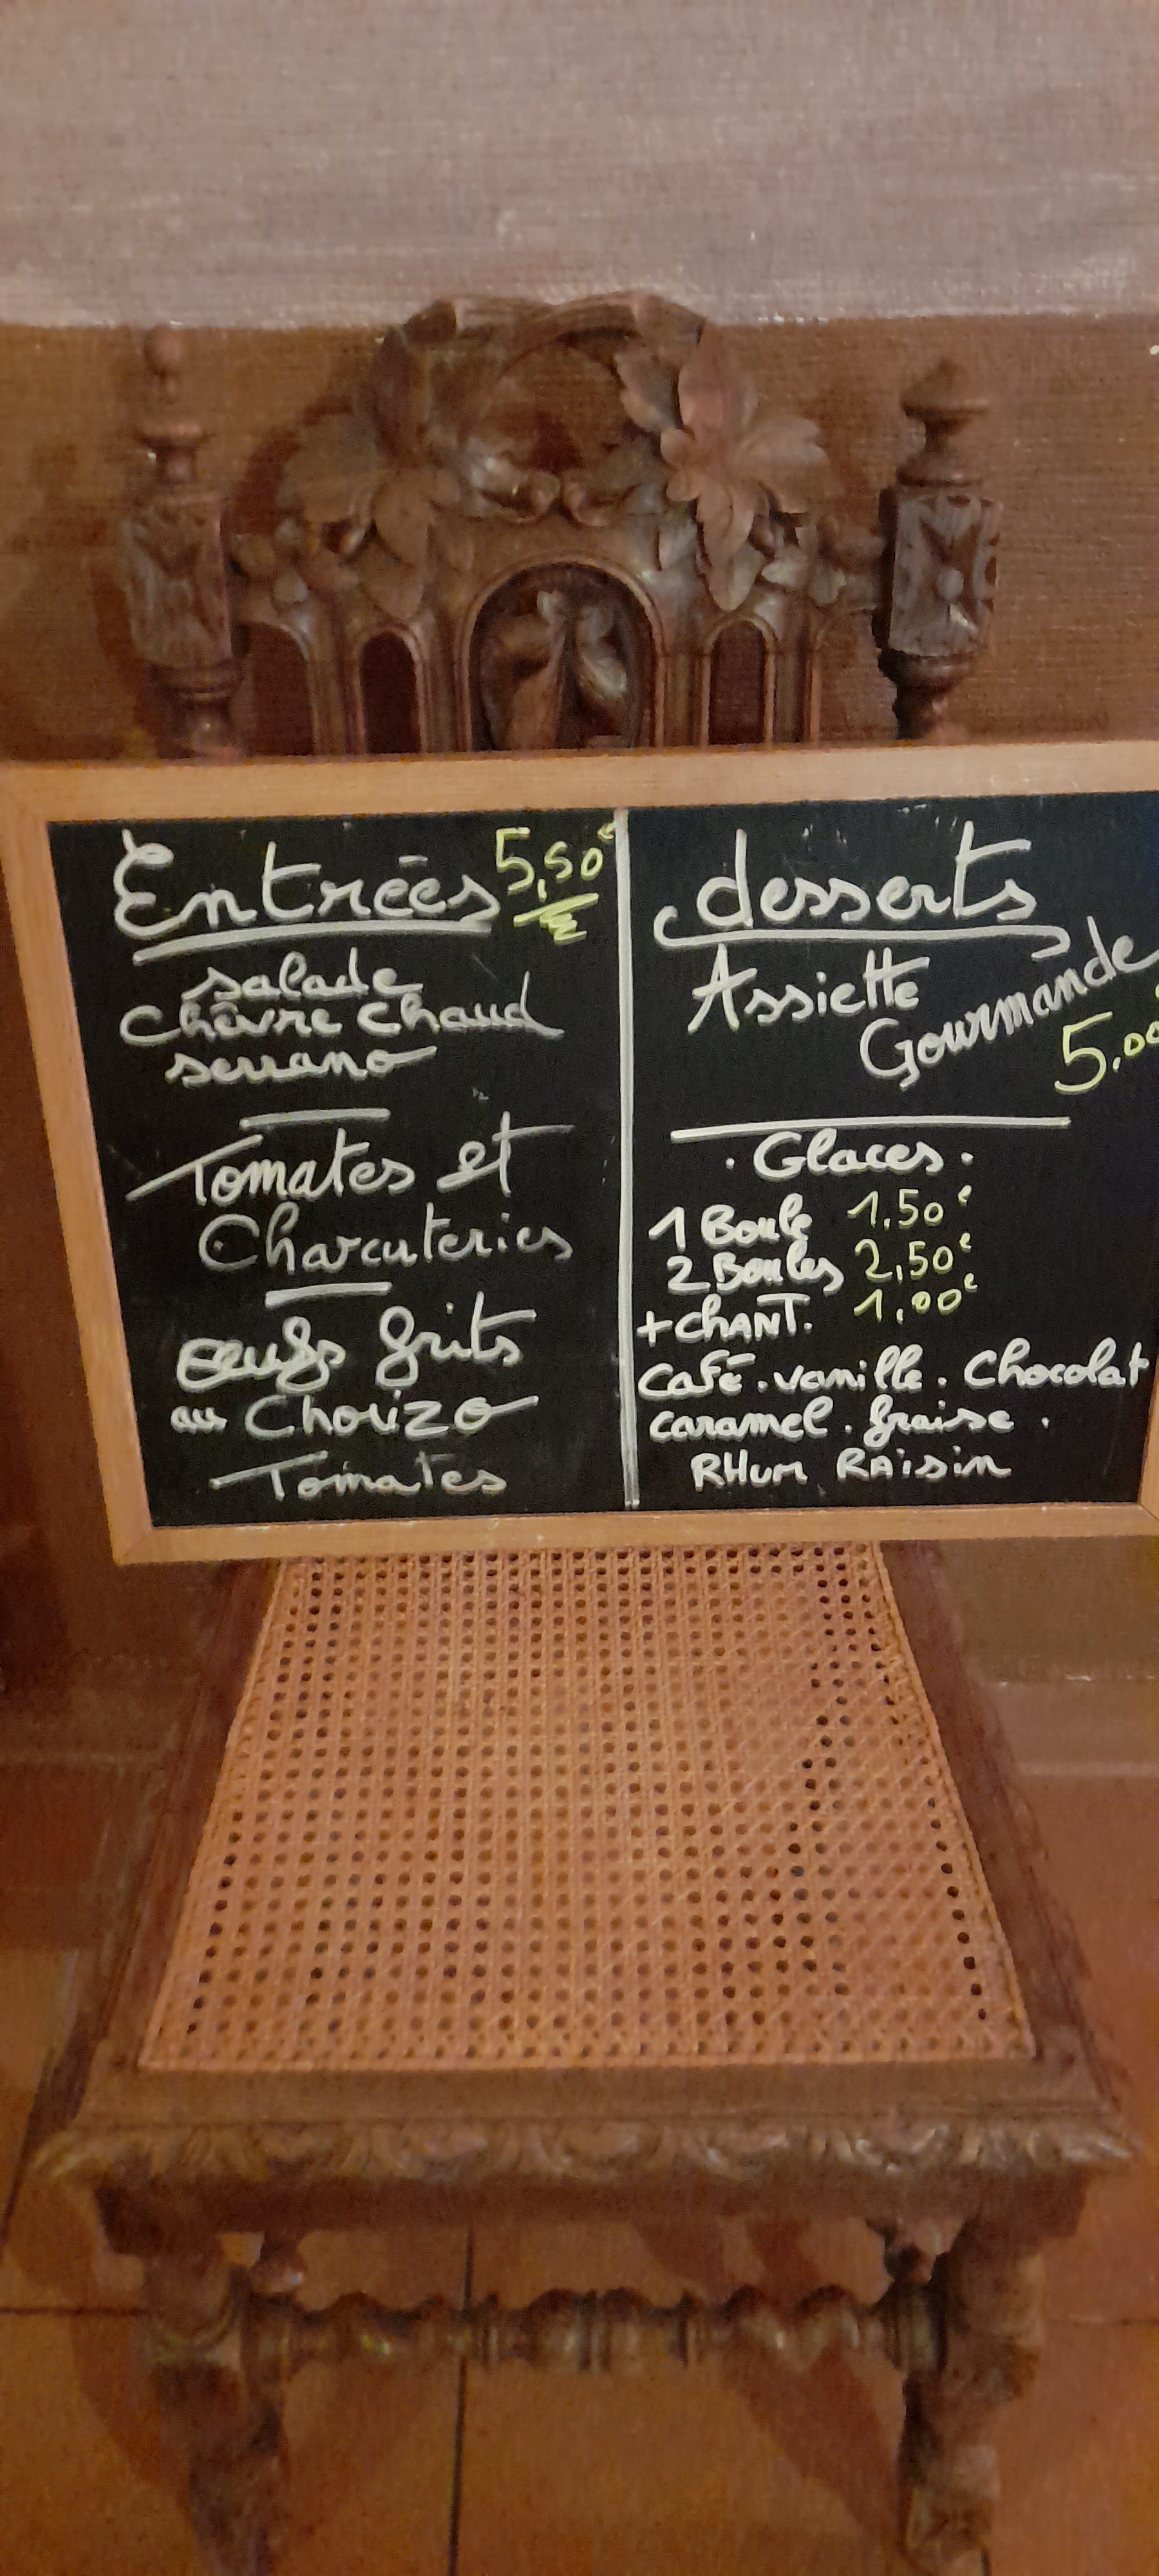 Entrées 5,50€
salade
Chèvre Chaud
serrano
Tomates et
Charcuteries
oeufs frits
au Chorizo
Tomates
desserts
Assiette
Gourmande
5.00
. Glaces.
1 Boule 1,50€
2 Boules 2,50€
+ CHANT. 1,00€
Café . vanille . Chocolat
caramel . fraise .
RHum RAisin